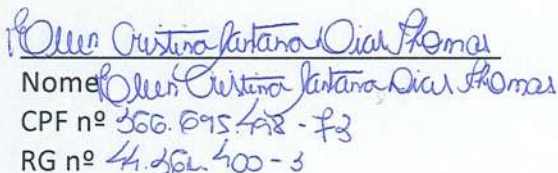 Ellen Cristina Santana Dias Thomas
Nome Ellen Cristina Santana Dias Thomas
CPF nº 366.695.498-73
RG nº 44.362.400-3